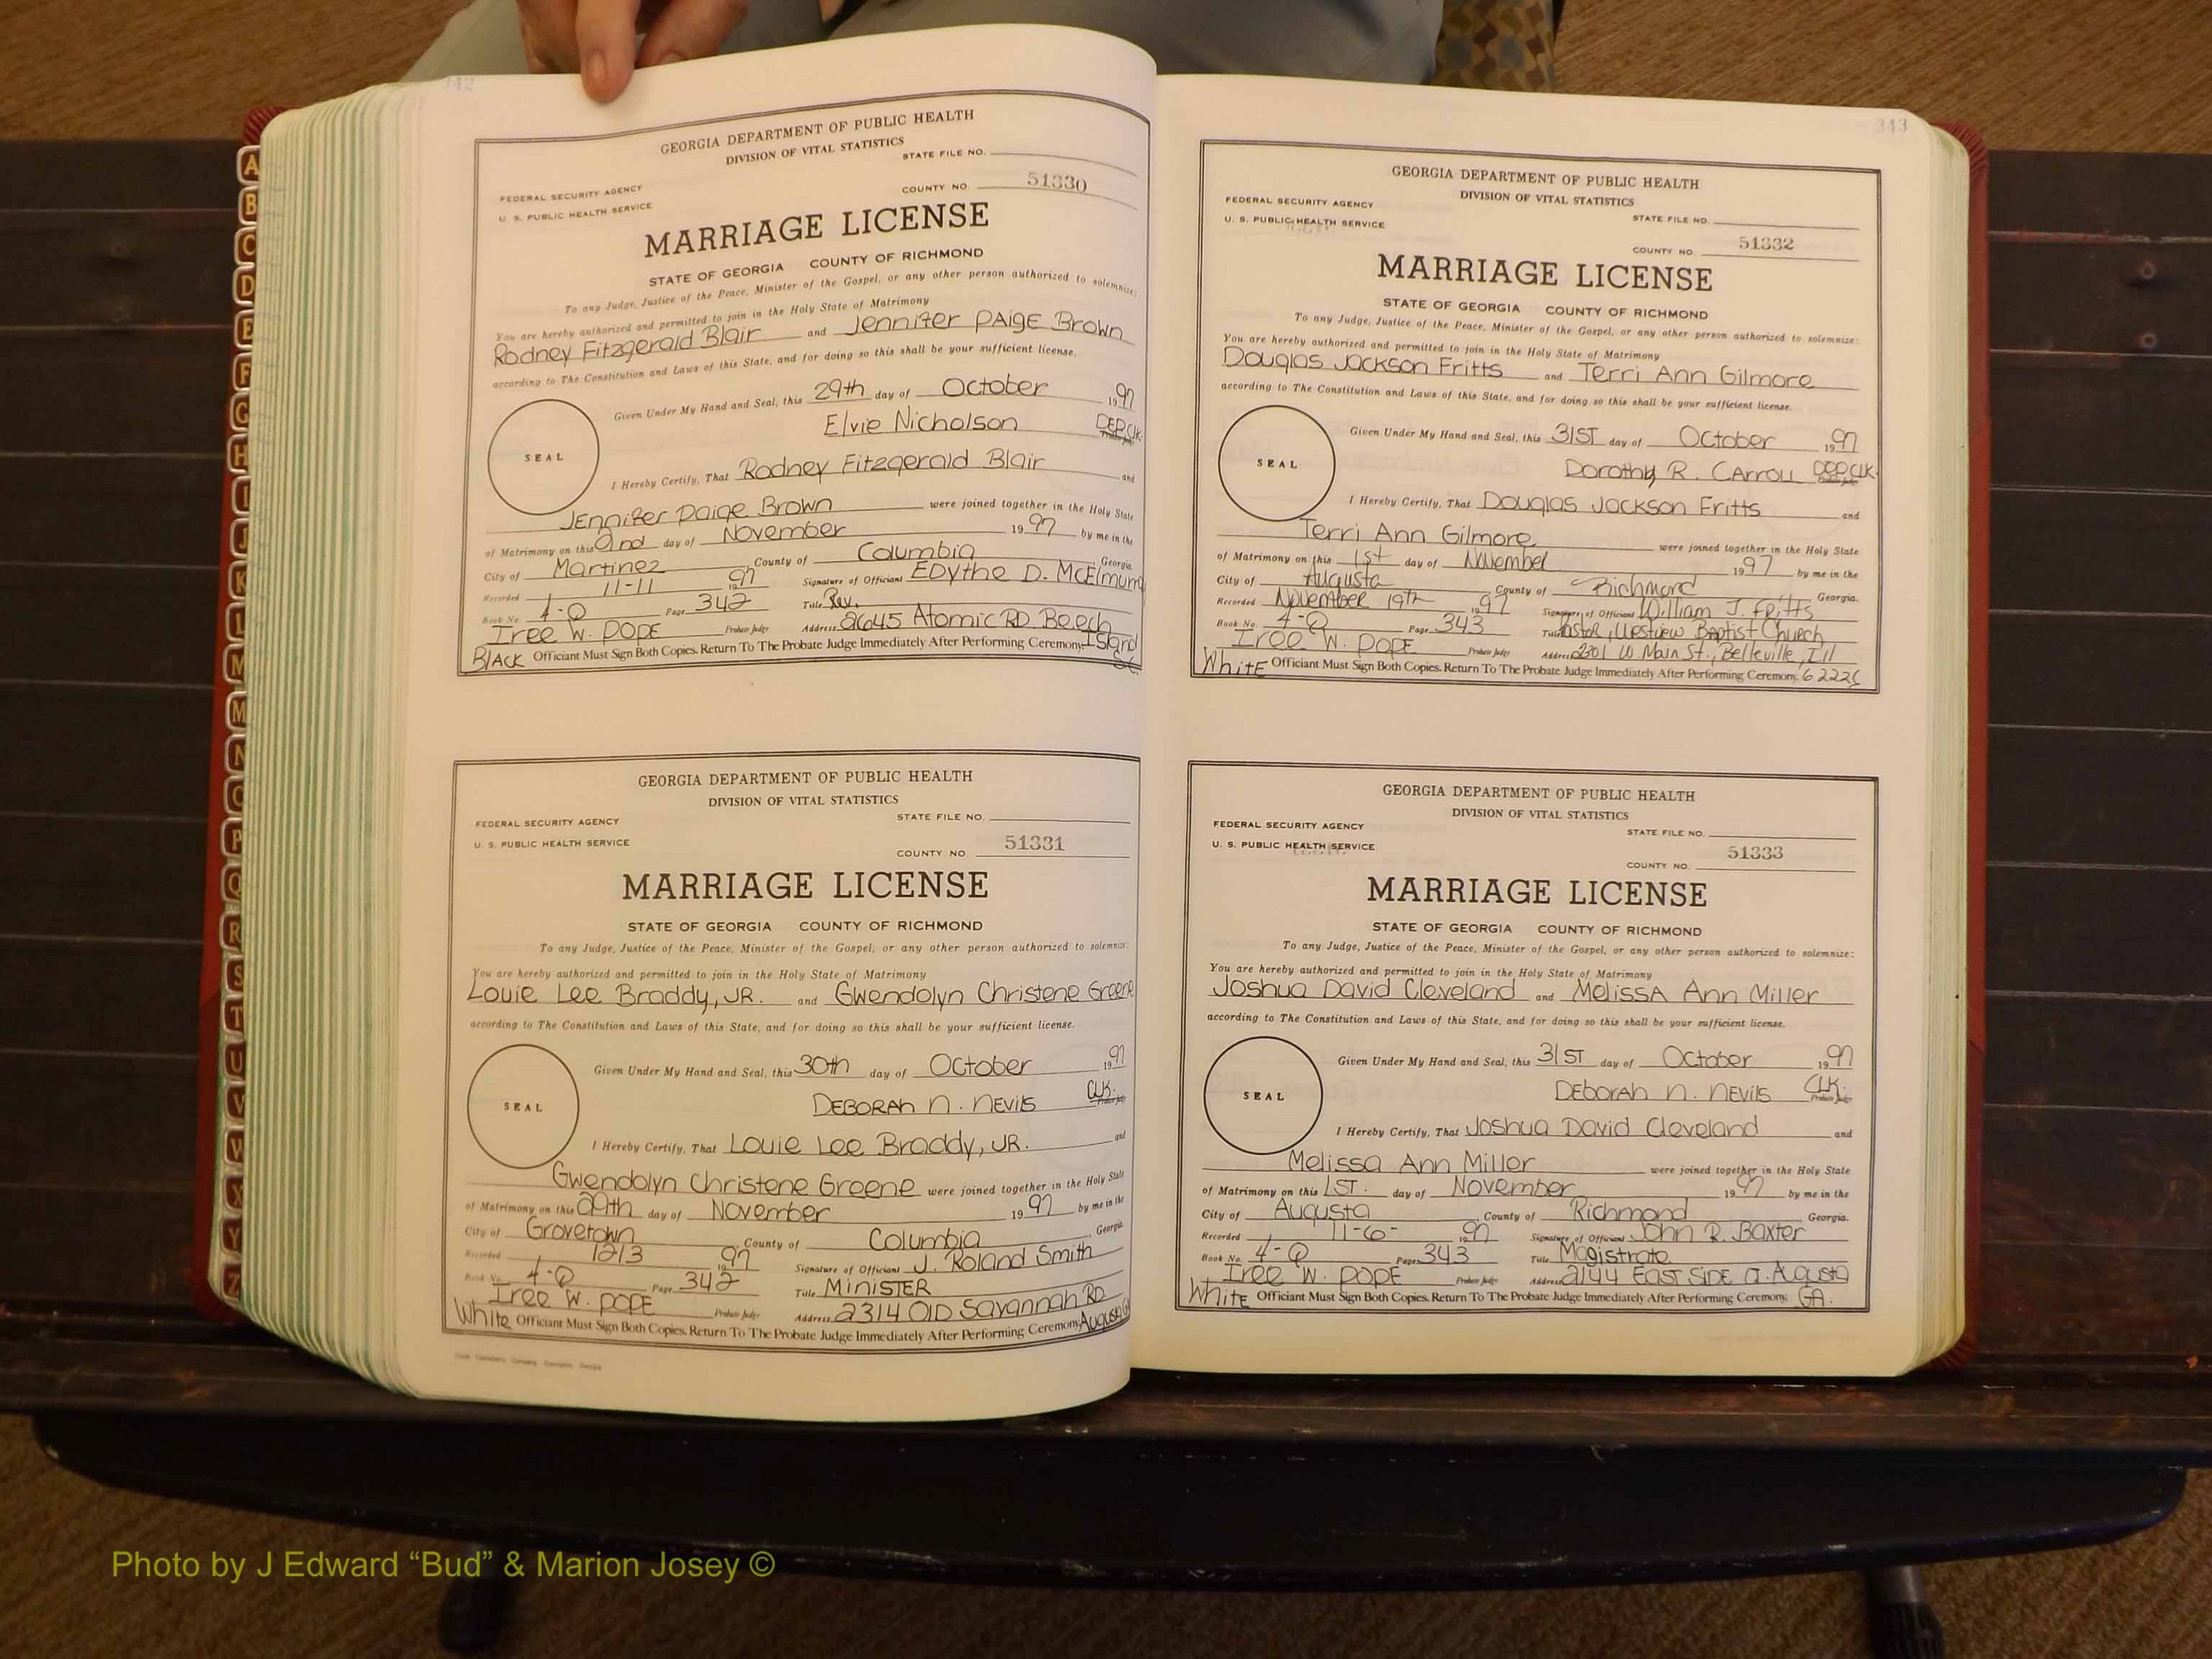 342
GEORGIA DEPARTMENT OF PUBLIC HEALTH
DIVISION OF VITAL STATISTICS
STATE FILE NO.
FEDERAL SECURITY AGENCY
COUNTY NO. 51330
U. S. PUBLIC HEALTH SERVICE
MARRIAGE LICENSE
STATE OF GEORGIA COUNTY OF RICHMOND
To any Judge, Justice of the Peace, Minister of the Gospel, or any other person authorized to solemnize:
You are hereby authorized and permitted to join in the Holy State of Matrimony
Rodney Fitzgerald Blair and Jennifer PAige Brown
according to The Constitution and Laws of this State, and for doing so this shall be your sufficient license.
Given Under My Hand and Seal, this 29th day of October 1997
Elvie Nicholson DEP.CLK.
SEAL
I Hereby Certify, That Rodney Fitzgerald Blair and
Jennifer Paige Brown were joined together in the Holy State
of Matrimony on this 2nd day of November 1997 by me in the
City of Martinez County of Columbia Georgia.
Recorded 11-11 1997 Signature of Officiant Edythe D. McElmurry
Book No. 4-Q Page 342 Title Rev.
Iree W. Pope Probate Judge Address 2645 Atomic RD. Beech
BLACK Officiant Must Sign Both Copies. Return To The Probate Judge Immediately After Performing Ceremony. Island
SC
GEORGIA DEPARTMENT OF PUBLIC HEALTH
DIVISION OF VITAL STATISTICS
STATE FILE NO.
FEDERAL SECURITY AGENCY
U. S. PUBLIC HEALTH SERVICE
COUNTY NO. 51331
MARRIAGE LICENSE
STATE OF GEORGIA COUNTY OF RICHMOND
To any Judge, Justice of the Peace, Minister of the Gospel, or any other person authorized to solemnize:
You are hereby authorized and permitted to join in the Holy State of Matrimony
Louie Lee Braddy, JR. and Gwendolyn Christene Greene
according to The Constitution and Laws of this State, and for doing so this shall be your sufficient license.
Given Under My Hand and Seal, this 30th day of October 1997
DEBORAH N. NEVILS CLK. Probate Judge
SEAL
I Hereby Certify, That Louie Lee Braddy, JR. and
Gwendolyn Christene Greene were joined together in the Holy State
of Matrimony on this 29th day of November 1997 by me in the
City of Grovetown County of Columbia Georgia
Recorded 1213 1997 Signature of Officiant J. Roland Smith
Book No. 4-Q Page 342 Title MINISTER
Iree W. Pope Probate Judge Address 2314 OLD Savannah RD
White Officiant Must Sign Both Copies. Return To The Probate Judge Immediately After Performing Ceremony. Augusta GA
343
GEORGIA DEPARTMENT OF PUBLIC HEALTH
DIVISION OF VITAL STATISTICS
FEDERAL SECURITY AGENCY
STATE FILE NO.
U. S. PUBLIC HEALTH SERVICE
COUNTY NO. 51332
MARRIAGE LICENSE
STATE OF GEORGIA COUNTY OF RICHMOND
To any Judge, Justice of the Peace, Minister of the Gospel, or any other person authorized to solemnize:
You are hereby authorized and permitted to join in the Holy State of Matrimony
Douglas Jackson Fritts and Terri Ann Gilmore
according to The Constitution and Laws of this State, and for doing so this shall be your sufficient license.
Given Under My Hand and Seal, this 31ST day of October 1997
Dorothy R. CArroll DEP.CLK.
SEAL
I Hereby Certify, That Douglas Jackson Fritts and
Terri Ann Gilmore were joined together in the Holy State
of Matrimony on this 1st day of November 1997 by me in the
City of Augusta County of Richmond Georgia.
Recorded November 19TH 1997 Signature of Officiant William J. Fritts
Book No. 4-Q Page 343 Title Pastor, Westview Baptist Church
Iree W. Pope Probate Judge Address 2301 W Main St., Belleville, Ill
White Officiant Must Sign Both Copies. Return To The Probate Judge Immediately After Performing Ceremony.
GEORGIA DEPARTMENT OF PUBLIC HEALTH
DIVISION OF VITAL STATISTICS
FEDERAL SECURITY AGENCY
STATE FILE NO.
U. S. PUBLIC HEALTH SERVICE
COUNTY NO. 51333
MARRIAGE LICENSE
STATE OF GEORGIA COUNTY OF RICHMOND
To any Judge, Justice of the Peace, Minister of the Gospel, or any other person authorized to solemnize:
You are hereby authorized and permitted to join in the Holy State of Matrimony
Joshua David Cleveland and MelissA Ann Miller
according to The Constitution and Laws of this State, and for doing so this shall be your sufficient license.
Given Under My Hand and Seal, this 31ST day of October 1997
DEborah N. NEVILS CLK. Probate Judge
SEAL
I Hereby Certify, That Joshua David Cleveland and
Melissa Ann Miller were joined together in the Holy State
of Matrimony on this 1ST. day of November 1997 by me in the
City of Augusta County of Richmond Georgia.
Recorded 11-6- 1997 Signature of Officiant John R. Baxter
Book No. 4-Q Page 343 Title Magistrate
Iree W. Pope Probate Judge Address 2144 EAST SIDE CT. Augusta
White Officiant Must Sign Both Copies. Return To The Probate Judge Immediately After Performing Ceremony. GA.
A
B
C
D
E
F
G
H
I
J
K
L
M
M
N
O
P
Q
R
S
T
U
V
W
X
Y
Z
Photo by J Edward “Bud” & Marion Josey ©